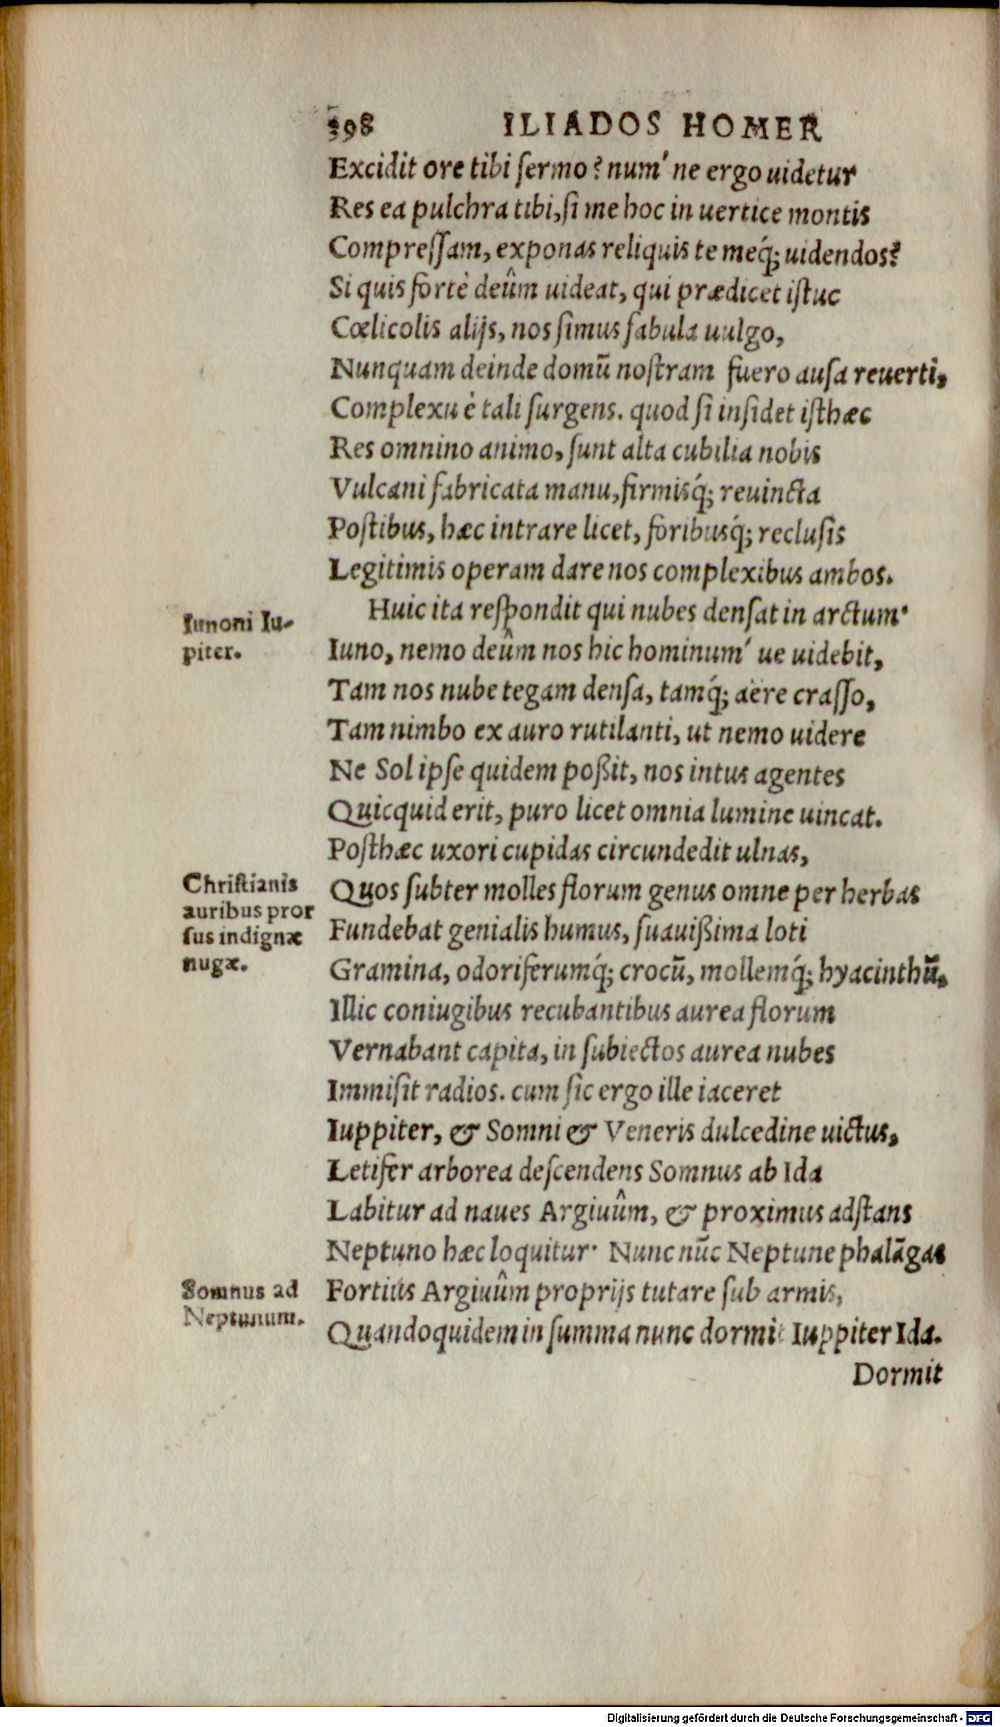 398 ILIADOS HOMER
Excidit ore tibi ſermo? num' ne ergo uidetur
Res ea pulchra tibi, ſi me hoc in uertice montis
Compreſſam, exponas reliquis te meq́; uidendos?
Si quis fortè deûm uideat, qui prædicet iſtuc
Cœlicolis alijs, nos ſimus fabula uulgo,
Nunquam deinde domũ noſtram fuero auſa reuerti,
Complexu è tali ſurgens. quod ſi inſidet iſthæc
Res omnino animo, ſunt alta cubilia nobis
Vulcani fabricata manu, firmisq́; reuincta
Poſtibus, hæc intrare licet, foribusq́; recluſis
Legitimis operam dare nos complexibus ambos.
Huic ita reſpondit qui nubes denſat in arctum·
Iunoni Iu-
piter.
Iuno, nemo deûm nos hic hominum' ue uidebit,
Tam nos nube tegam denſa, tamq́; aëre craſſo,
Tam nimbo ex auro rutilanti, ut nemo uidere
Ne Sol ipſe quidem poßit, nos intus agentes
Quicquid erit, puro licet omnia lumine uincat.
Poſthæc uxori cupidas circundedit ulnas,
Christianis
auribus pror
ſus indignæ
nugæ.
Quos ſubter molles florum genus omne per herbas
Fundebat genialis humus, ſuauißima loti
Gramina, odoriferumq́; crocũ, mollemq́; hyacinthũ,
Illic coniugibus recubantibus aurea florum
Vernabant capita, in ſubiectos aurea nubes
Immiſit radios. cum ſic ergo ille iaceret
Iuppiter, & Somni & Veneris dulcedine uictus,
Letifer arborea deſcendens Somnus ab Ida
Labitur ad naues Argiuûm, & proximus adſtans
Neptuno hæc loquitur· Nunc nũc Neptune phalãgas
Somnus ad
Neptunum.
Fortiùs Argiuûm proprijs tutare ſub armis,
Quandoquidem in ſumma nunc dormit Iuppiter Ida.
Dormit
Digitalisierung gefördert durch die Deutsche Forschungsgemeinschaft - DFG